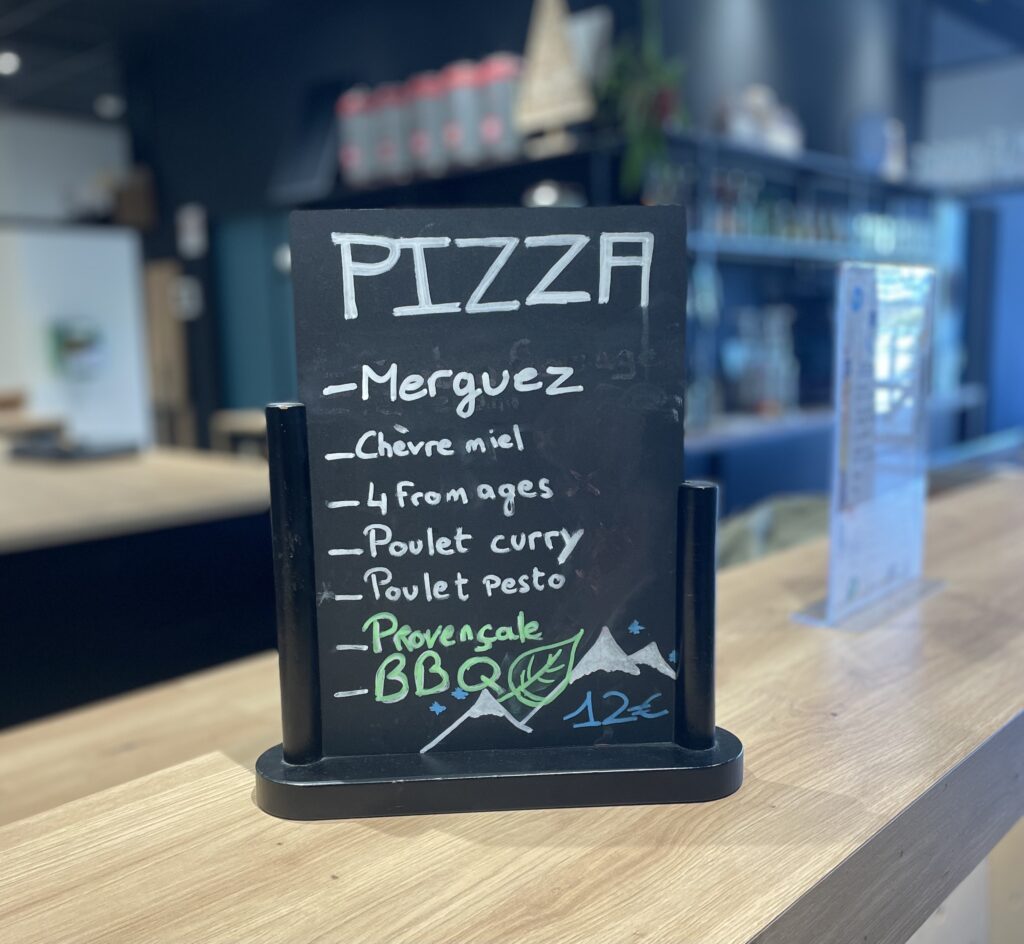 PIZZA
- Merguez
- Chèvre miel
- 4 fromages
- Poulet curry
- Poulet pesto
- Provençale
- BBQ
12€